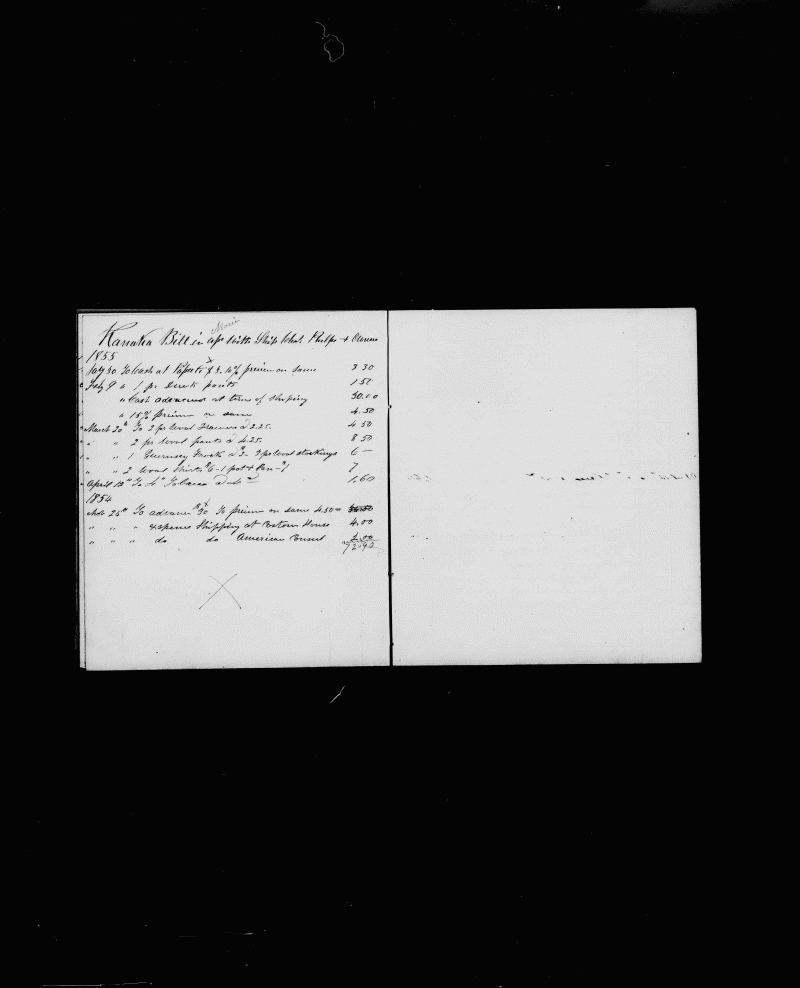 Maui
Kanaka Bill in a/c with Ship Chas. Phelps & Owners
1855
30 To Cash at $3. 10% premium on same 3 30
Feby 9 " 1 pr Duck pants 1 50
" Cash advanced at time of shiping 30.00
" 15% premium on same 4.50
March 20th To 2 pr wool Drawers @ 2.25. 4 50
" " 2 prs wool pants @ 4.25. 8 50
" " 1 Guernsey Frock @ 3- 2 prs wool stockings 6 —
" " 2 wool Shirts $6 - 1 pot & Pan $1 7
April 12th To Tobacco 1.60
1854
26th To advance $30 To premium on same 4.50 = 34.50
" " " expence Shipping at Custom House 4.00
" " " do do American Consul 2.00
72.90